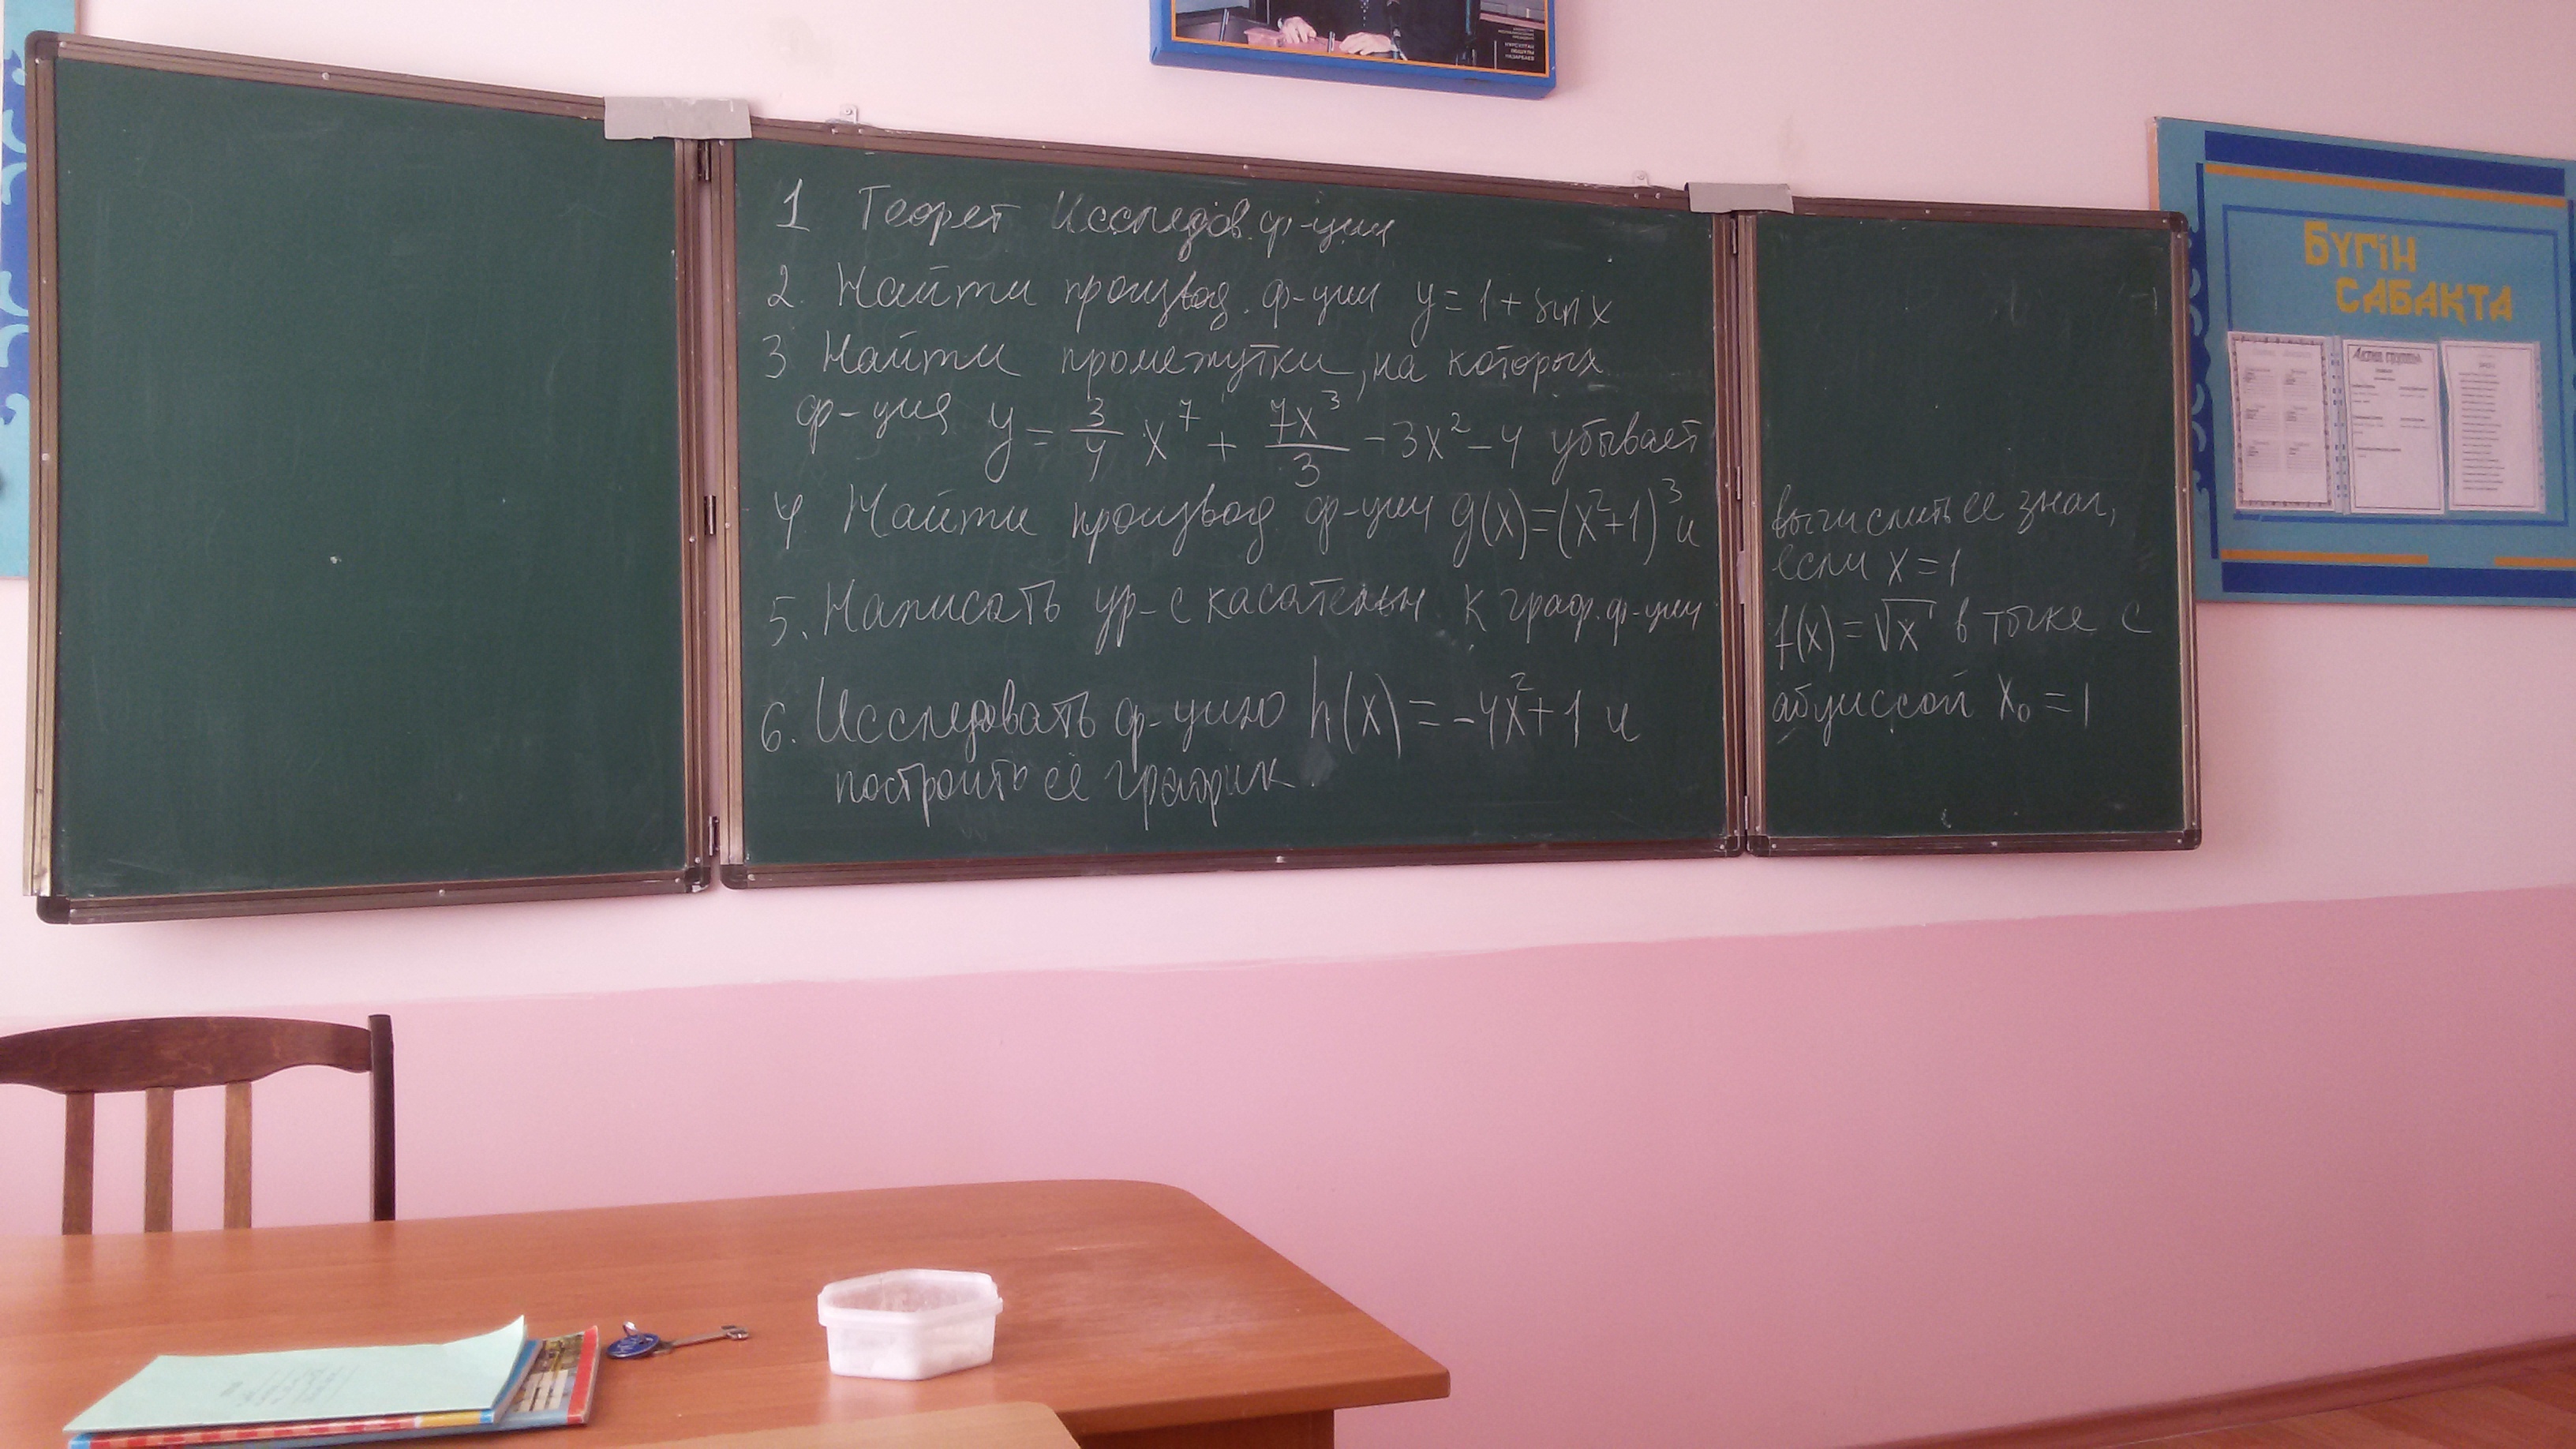 НУРСУЛТАН
НАЗАРБАЕВ
1 Теорет Исследов. ф-ции
2. Найти производ. ф-ции y = 1 + sin x
3 Найти промежутки, на которых
ф-ция y = 3/4 x^7 + 7x^3/3 - 3x^2 - 4 убывает
4 Найти производ ф-ции g(x)=(x^2+1)^3 и
вычислить её знач,
если x = 1
5. Написать ур-е касательн к граф. ф-ции
f(x) = √x в точке с
абциссой x₀ = 1
6. Исследовать ф-цию h(x) = -4x^2+1 и
построить её график.
БҮГІН
САБАҚТА